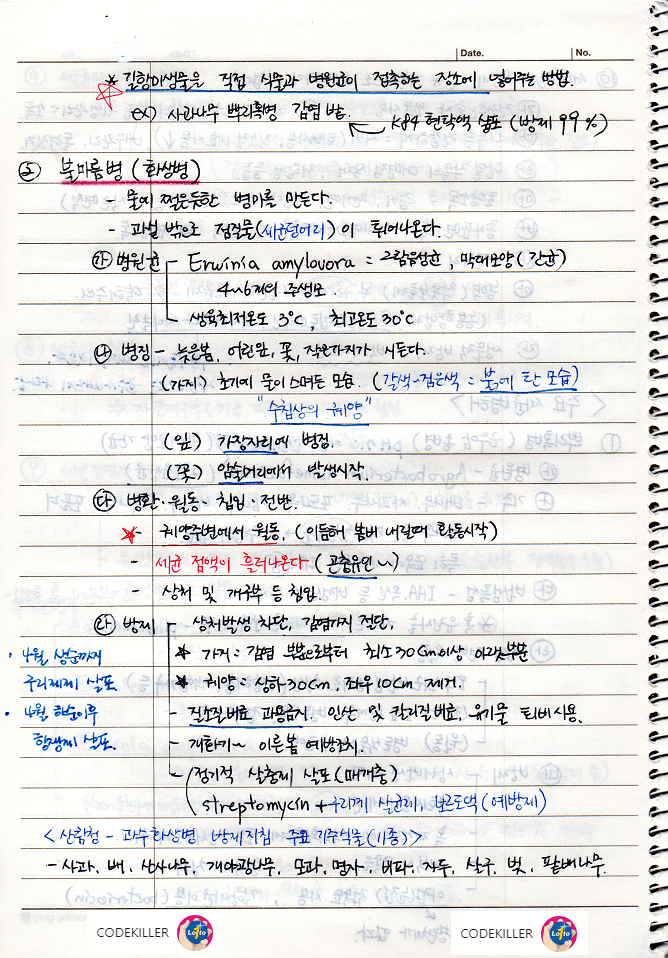 Date. No.
* 길항미생물을 직접 식물과 병원균이 접촉하는 장소에 넣어주는 방법.
ex) 사과나무 뿌리혹병 감염 밤. ← K84 현탁액 살포 (방제 99%)
⑤ 불마름병 (화상병)
- 물에 젖은듯한 병이를 만든다.
- 과실 밖으로 점질물(세균덩어리)이 튀어나온다.
㉮ 병원균 - Erwinia amylovora = 그람음성균, 막대모양 (간균)
4~6개의 주생모.
- 생육최저온도 3°C, 최고온도 30°C
㉯ 병징 - 늦은봄, 어린잎, 꽃, 작은가지가 시든다.
(가지) 초기에 물이 스며든 모습. (갈색-검은색 = 불에 탄 모습)
"수침상의 궤양"
(잎) 가장자리에 병징.
(꽃) 암술머리에서 발생시작.
㉰ 병환·월동·침입·전반.
* - 궤양주변에서 월동. (이듬해 봄비 내릴때 활동시작)
- 세균 점액이 흘러나온다 (곤충유인 ~)
- 상처 및 개구부 등 침입.
㉱ 방제 - 상처발생 차단, 감염가지 절단.
* 가지 = 감염 부분으로부터 최소 30cm이상 아랫부분
* 궤양 = 상하 30cm, 좌우 10cm 제거.
- 질소질비료 과용금지. 인산 및 칼리질비료, 유기물 퇴비 사용.
- 개화기~ 이른봄 예방조치.
- 정기적 살충제 살포 (매개충)
streptomycin + 구리제 살균제, 보르도액 (예방제)
· 4월 상순까지
구리제제 살포.
· 4월 하순이후
항생제 살포.
<산림청 - 과수화상병 방제지침 주요 기주식물(11종)>
- 사과. 배. 산사나무. 개야광나무. 모과. 명자. 비파. 자두. 살구. 벚. 팥배나무.
CODEKILLER Lotto CODEKILLER Lotto